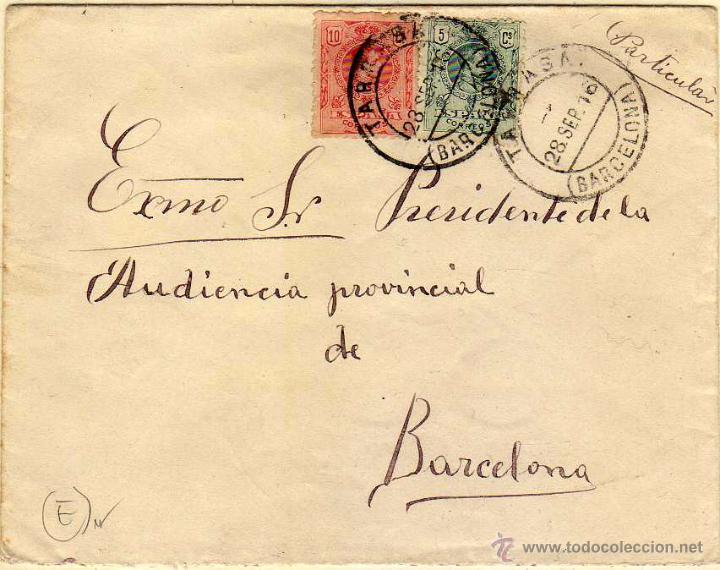 Particular
10
5 Cs
TARRASA.
28 SEP. 16
(BARCELONA)
TARRASA.
28 SEP. 16
(BARCELONA)
Exmo Sr Presidente de la
Audiencia provincial
de
Barcelona
E
www.todocoleccion.net